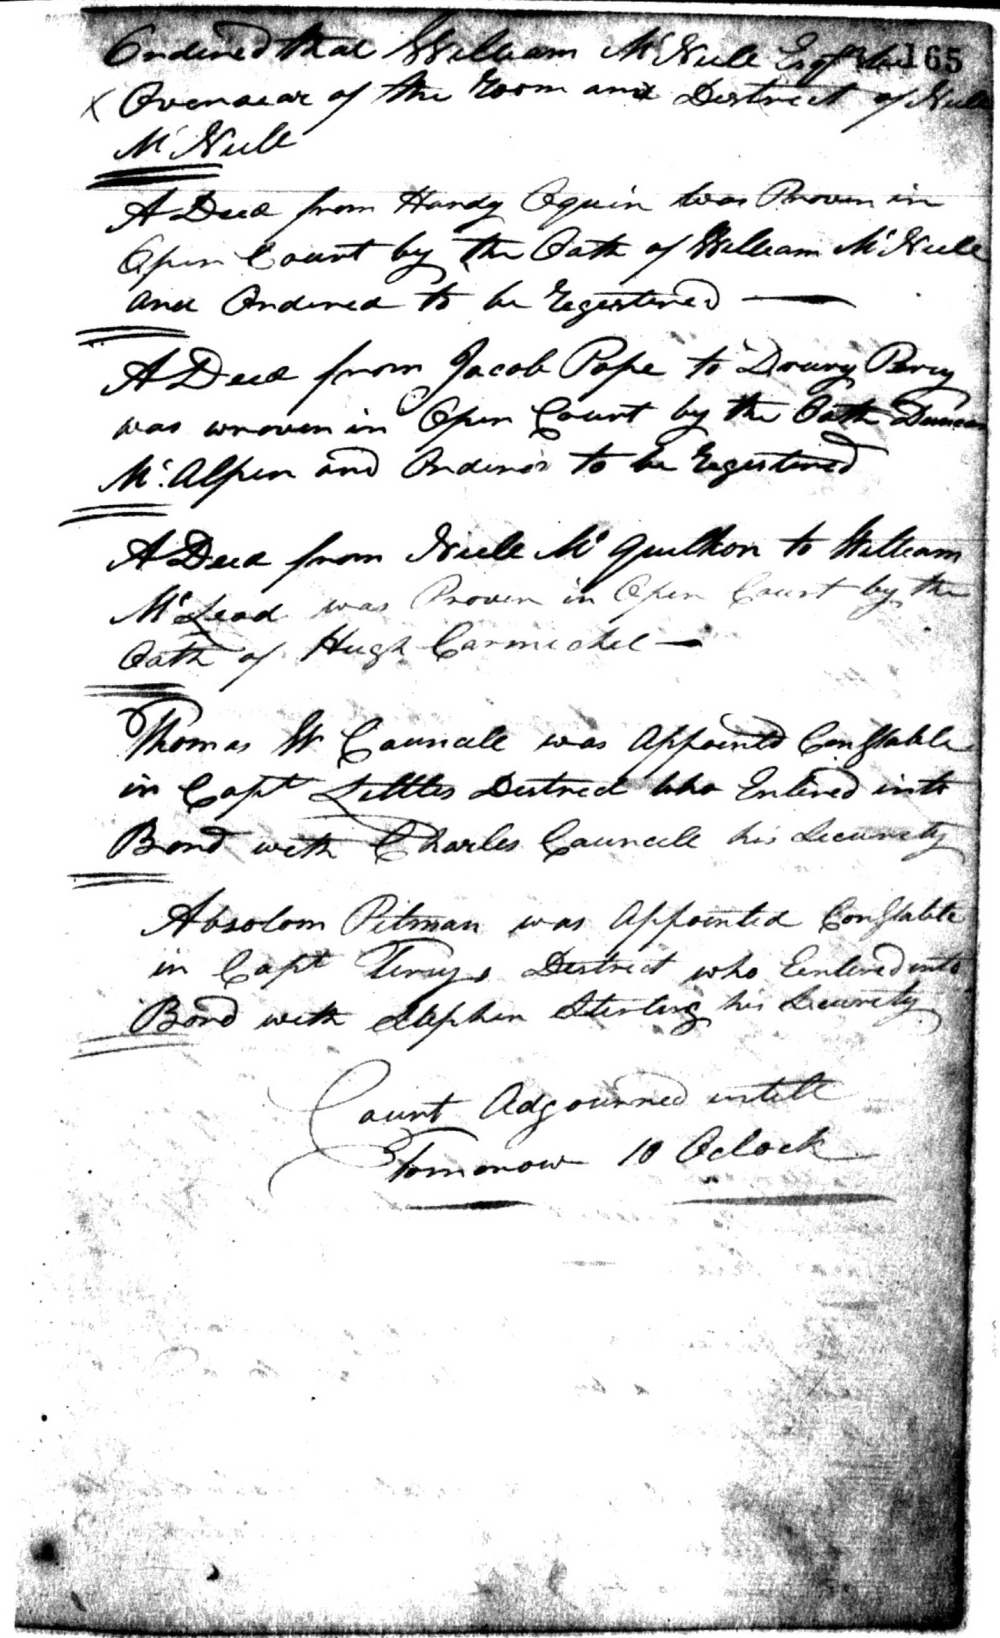 Ordered that William McNeill Esqr be 165
X Overseear of the Room and District of Neill
McNeill
A Deed from Handy Oquin was Proven in
Open Court by the Oath of William McNeill
and Ordered to be Registered
A Deed from Jacob Pope to Drury Percy
was wroven in Open Court by the Oath Duncan
Mc.Alpin and Ordered to be Registered
A Deed from Neill Mc Quilkon to William
McLeod was Proven in Open Court by the
Oath of Hugh Carmichel
Thomas W Councill was Appointed Constable
in Capt Littles District who Entired into
Bond with Charles Councill his Security
Absolom Pitman was Appointed Constable
in Capt District who Eentired into
Bond with Stephen Sterling his Security
Court Adgourned untill
Tomorrow 10 Oclock